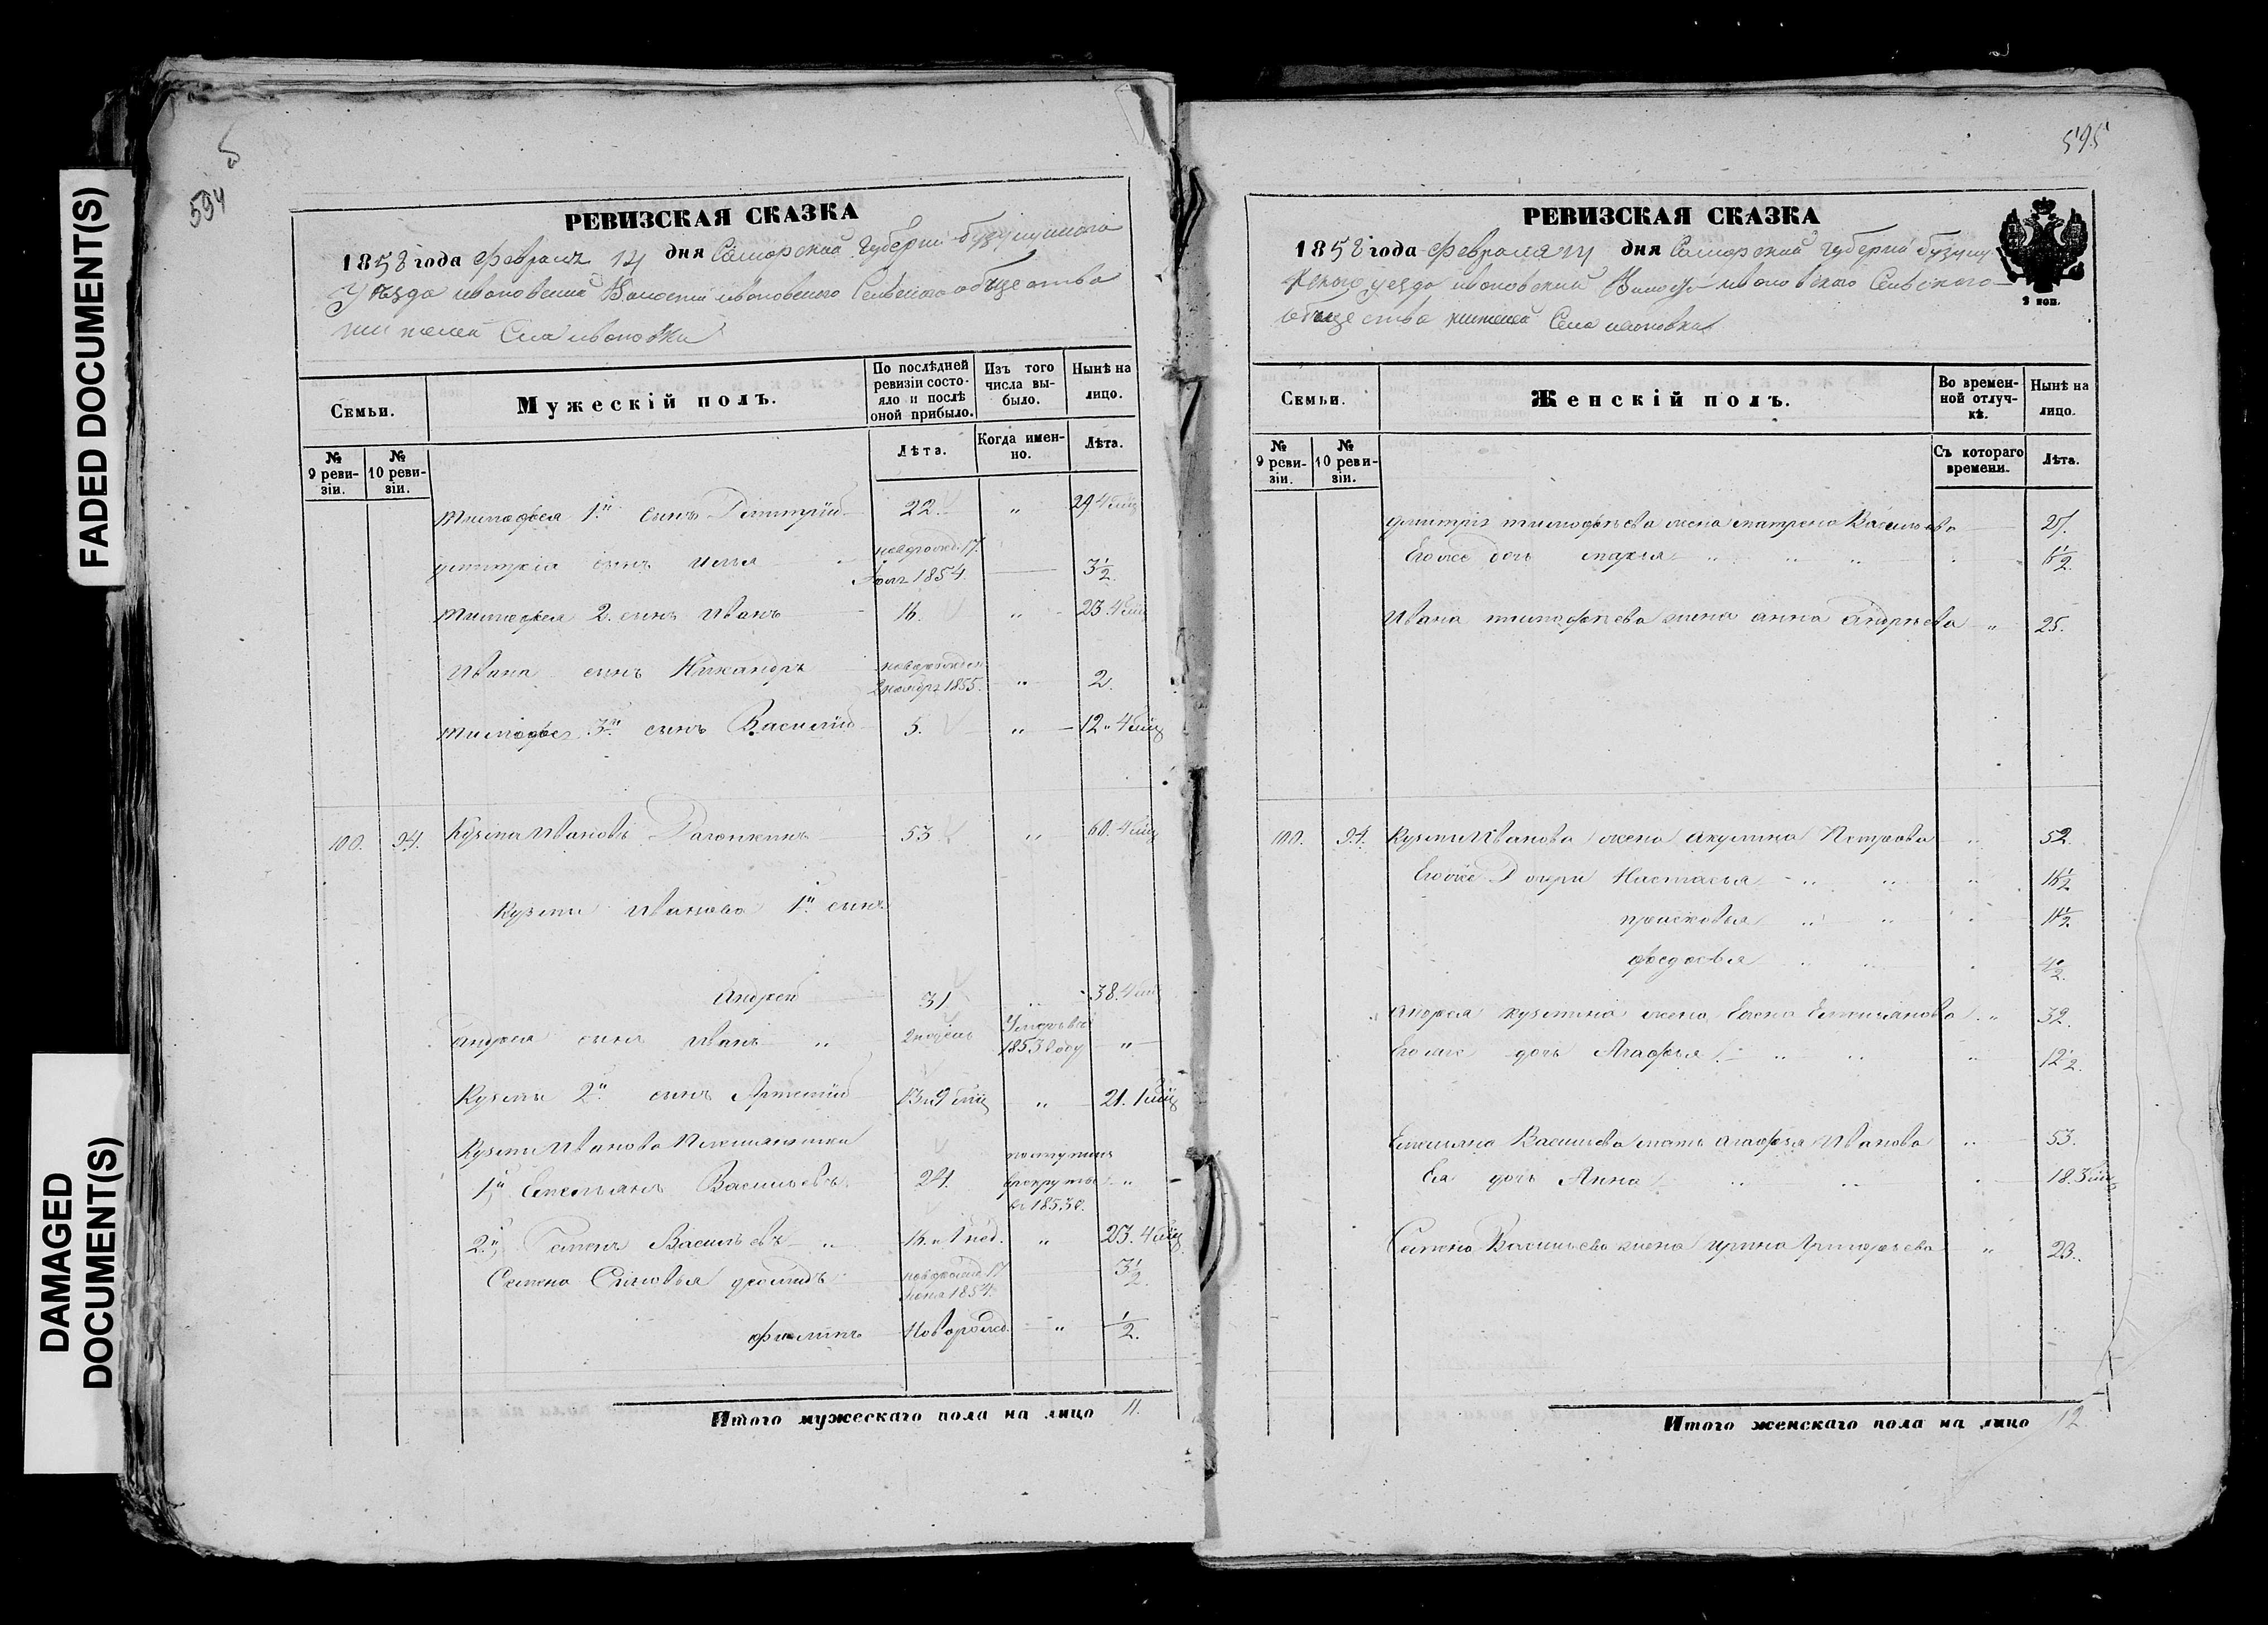 FADED DOCUMENT(S)
DAMAGED
DOCUMENT(S)
594
РЕВИЗСКАЯ СКАЗКА
1858 года Февраля 14 дня Самарской Губерніи Бузулукскаго
Уѣзда Ивановской Волости Ивановскаго Сельскаго общества
жителей Села Ивановки
Семьи.
Мужескій полъ.
По послѣдней
ревизіи состо-
яло и послѣ
оной прибыло.
Изъ того
числа вы-
было.
Нынѣ на
лицо.
№
9 реви-
зіи.
№
10 реви-
зіи.
Лѣта.
Когда имен-
но.
Лѣта.
Тимофея 1й сынъ Димитрій 22 „ 29 4 мц
Димитрія сынъ Илья новорожд. 17. 1854. 3½.
Тимофея 2. сынъ Иванъ 16. „ 23. 4 мц
Ивана сынъ Никандръ новорожден 1855. „ 2.
Тимофея 3й сынъ Василій 5. „ 12 „ 4 мц
100. 94. Кузьма Ивановъ 53 „ 60. 4 мц
Кузьмы Иванова 1й сынъ
Андрей 31. „ 38. 4 мц
Андрея сынъ Иванъ „ 2 недѣль Умеръ въ 1853 году „
Кузьмы 2й сынъ Артемій 13 и 9 мц „ 21. 1 мц
Кузьмы Иванова Племянники
1й Емельянъ Васильевъ 24. поступилъ в рекруты въ 1853 г. „
2й Семенъ Васильевъ „ 16 и 1 нед. „ 23. 4 мц
Семена Сыновья Новорожд 17 1854 3½.
Филипъ Новорожд. „ ½.
Итого мужескаго пола на лицо 11.
595
РЕВИЗСКАЯ СКАЗКА
1858 года Февраля 14 дня Самарской Губерніи Бузулу
кскаго уезда Ивановской Волости Ивановскаго Сельскаго
общества жителей Села Ивановки
2 коп.
Семьи.
Женскій полъ.
Во времен-
ной отлуч-
кѣ.
Нынѣ на
лицо.
№
9 реви-
зіи.
№
10 реви-
зіи.
Съ котораго
времени.
Лѣта.
Димитрія Тимофѣева жена Матрена Васильева 27.
Его же дочь Марья „ „ „
Ивана Тимофѣева жена Анна Андрѣева „ 25.
100. 94. Кузьмы Иванова жена Акулина Петрова „ 52.
Его же Дочери Настасья „ „ „ 16½
Прасковья „ „ „ 11½
Федосья „ „ „ 4½
Андрея Кузьмина жена Елена Емельянова „ 32.
Его же дочь Агафья „ „ „ 12½.
Емельяна Васильева мать Агафья Иванова „ 53.
Ея дочь Анна „ „ „ 18. 3 мц
Семена Васильева жена Ирина Григорьева „ 23.
Итого женскаго пола на лицо 12.